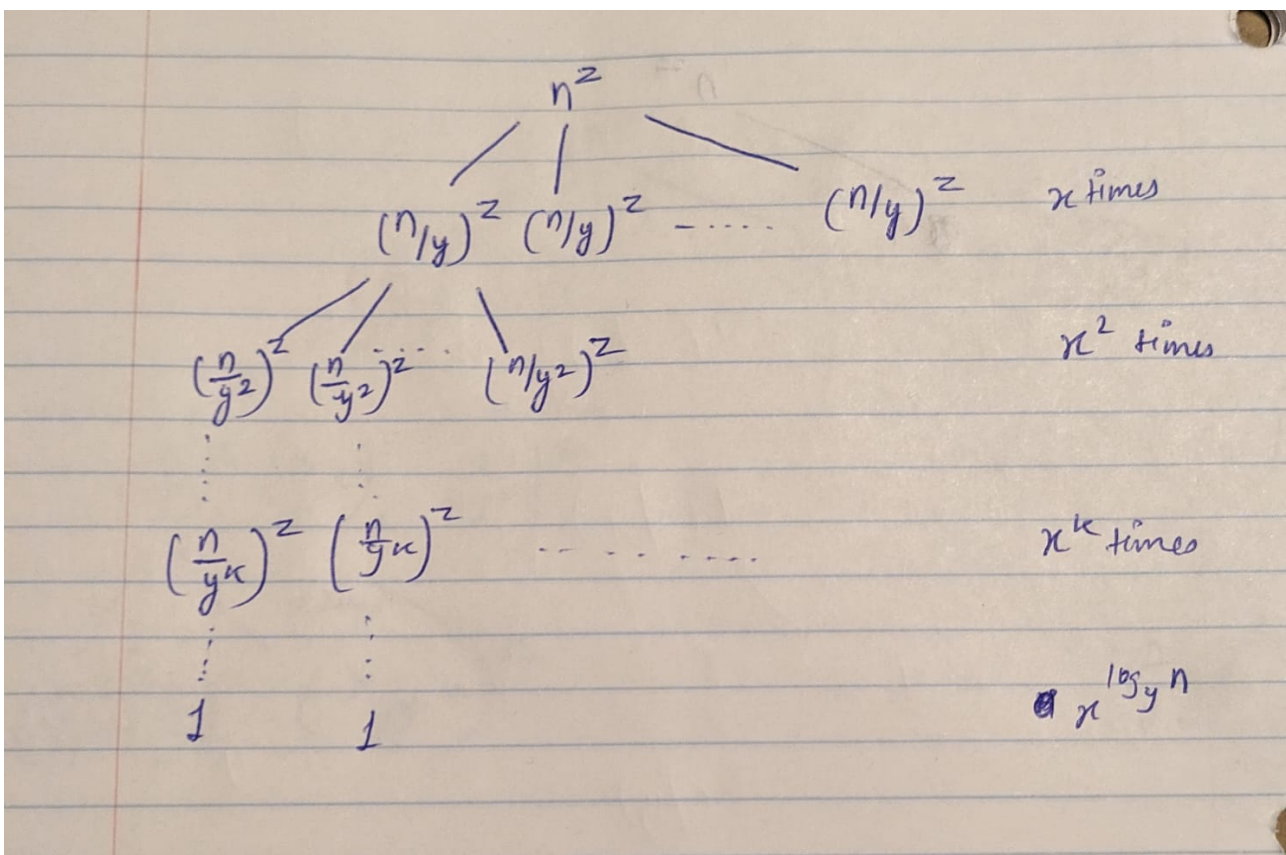 n^z
(n/y)^z (n/y)^z - ..... (n/y)^z x times
(n/y^2)^z (n/y^2)^z ..... (n/y^2)^z x^2 times
(n/y^k)^z (n/y^k)^z .. . .. .... x^k times
1 1 x^log_y n